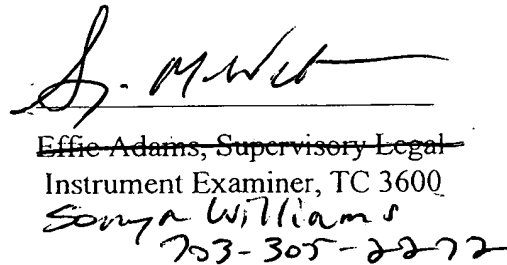 Effie Adams, Supervisory Legal
Instrument Examiner, TC 3600
Sonya Williams
703-305-2272